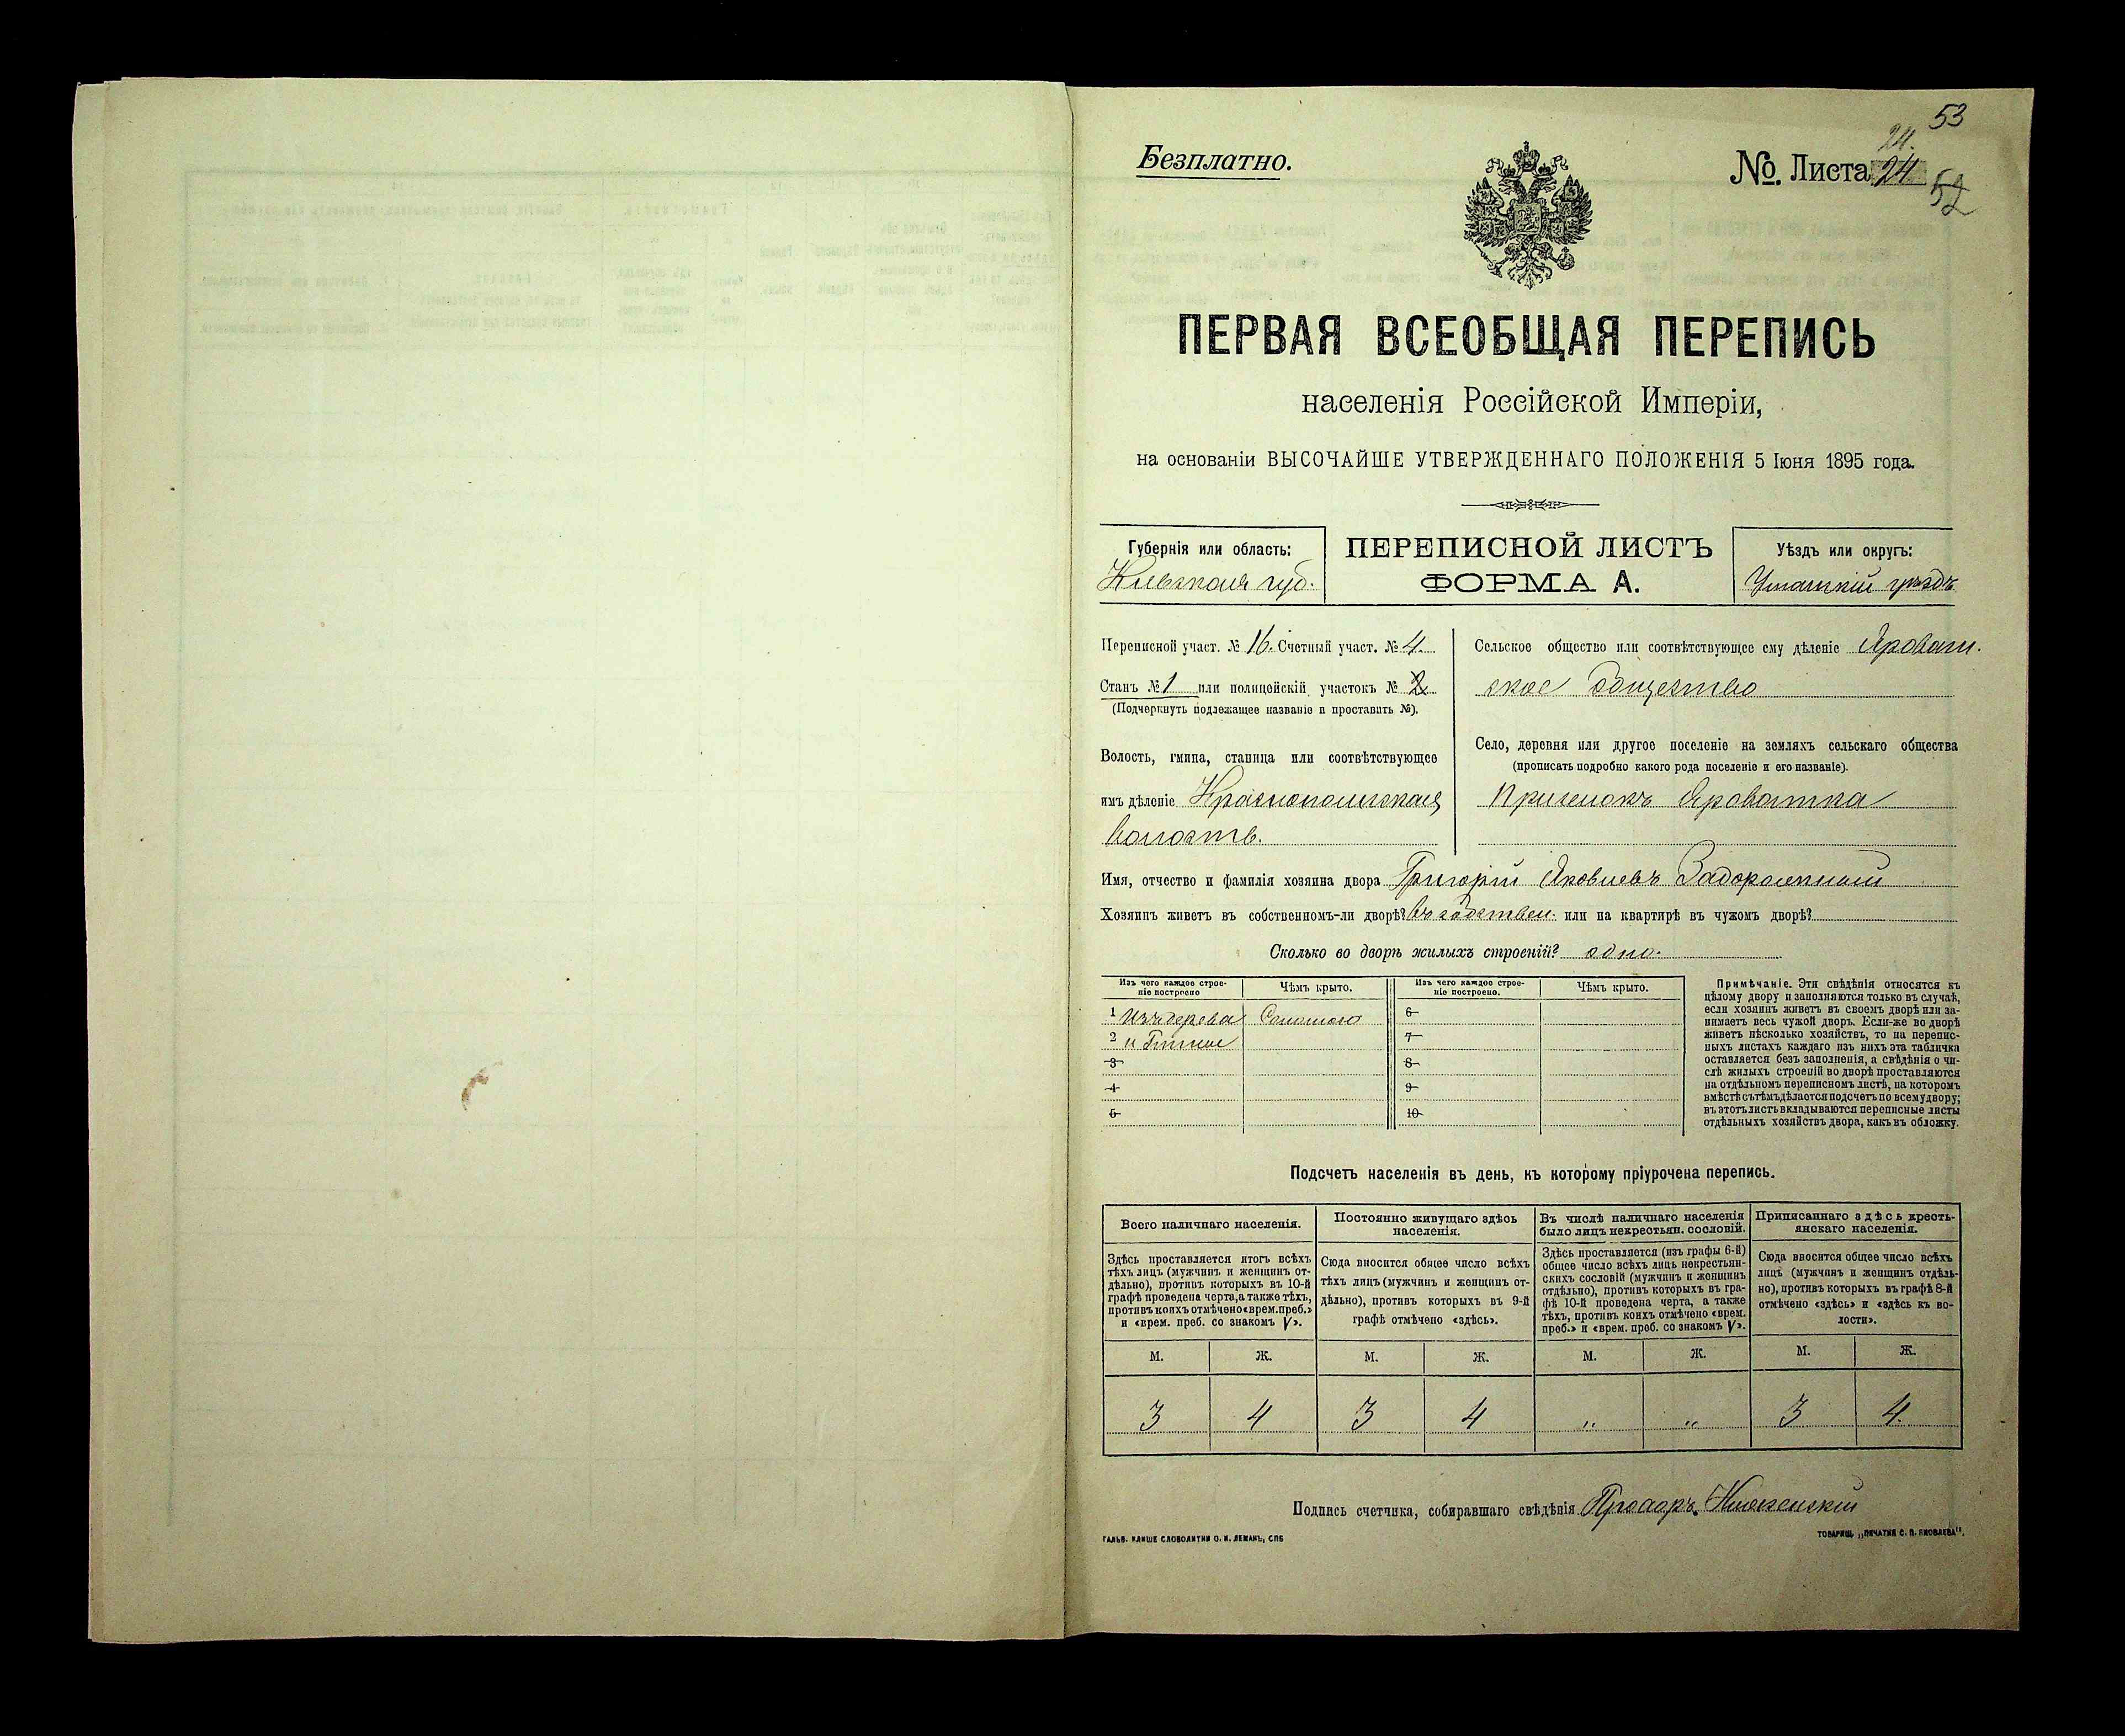 53
24.
Безплатно.
№. Листа 24
52
ПЕРВАЯ ВСЕОБЩАЯ ПЕРЕПИСЬ
населенія Россійской Имперіи,
на основаніи ВЫСОЧАЙШЕ УТВЕРЖДЕННАГО ПОЛОЖЕНІЯ 5 Іюня 1895 года.
Губернія или область:
Кіевская губ.
ПЕРЕПИСНОЙ ЛИСТЪ
ФОРМА А.
Уѣздъ или округъ:
Уманскій уѣздъ
Переписной участ. № 16. Счетный участ. № 4.
Станъ № 1 или полицейскій участокъ № 2
(Подчеркнуть подлежащее названіе и проставить №).
Волость, гмина, станица или соотвѣтствующее
имъ дѣленіе Краснопольская
волость.
Сельское общество или соотвѣтствующее ему дѣленіе Яроват.
ское общество
Село, деревня или другое поселеніе на земляхъ сельскаго общества
(прописать подробно какого рода поселеніе и его названіе).
Приселокъ Яроватка
Имя, отчество и фамилія хозяина двора Григорій Яковлевъ Задорожный
Хозяинъ живетъ въ собственномъ-ли дворѣ? въ собствен. или на квартирѣ въ чужомъ дворѣ?
Сколько во дворѣ жилыхъ строеній? одно.
Изъ чего каждое строеніе построено
Чѣмъ крыто.
Изъ чего каждое строеніе построено.
Чѣмъ крыто.
1 Изъ дерева Соломою
2 и Глины
3
4
5
6
7
8
9
10
Примѣчаніе. Эти свѣдѣнія относятся къ
цѣлому двору и заполняются только въ случаѣ,
если хозяинъ живетъ въ своемъ дворѣ или за-
нимаетъ весь чужой дворъ. Если-же во дворѣ
живетъ нѣсколько хозяйствъ, то на перепис-
ныхъ листахъ каждаго изъ нихъ эта табличка
оставляется безъ заполненія, а свѣдѣнія о чи-
слѣ жилыхъ строеній во дворѣ проставляются
на отдѣльномъ переписномъ листѣ, на которомъ
вмѣстѣ съ тѣмъ дѣлается подсчетъ по всему двору;
въ этотъ листъ вкладываются переписные листы
отдѣльныхъ хозяйствъ двора, какъ въ обложку.
Подсчетъ населенія въ день, къ которому пріурочена перепись.
Всего наличнаго населенія.
Здѣсь проставляется итогъ всѣхъ
тѣхъ лицъ (мужчинъ и женщинъ от-
дѣльно), противъ которыхъ въ 10-й
графѣ проведена черта, а также тѣхъ,
противъ коихъ отмѣчено «врем. преб.»
и «врем. преб. со знакомъ V».
Постоянно живущаго здѣсь
населенія.
Сюда вносится общее число всѣхъ
тѣхъ лицъ (мужчинъ и женщинъ от-
дѣльно), противъ которыхъ въ 9-й
графѣ отмѣчено «здѣсь».
Въ числѣ наличнаго населенія
было лицъ некрестьян. сословій.
Здѣсь проставляется (изъ графы 6-й)
общее число всѣхъ лицъ некрестьян-
скихъ сословій (мужчинъ и женщинъ
отдѣльно), противъ которыхъ въ гра-
фѣ 10-й проведена черта, а также
тѣхъ, противъ коихъ отмѣчено «врем.
преб.» и «врем. преб. со знакомъ V».
Приписаннаго здѣсь кресть-
янскаго населенія.
Сюда вносится общее число всѣхъ
лицъ (мужчинъ и женщинъ отдѣль-
но), противъ которыхъ въ графѣ 8-й
отмѣчено «здѣсь» и «здѣсь къ во-
лости».
М. Ж. М. Ж. М. Ж. М. Ж.
3 4 3 4 „ „ 3 4.
Подпись счетчика, собиравшаго свѣдѣнія
ГАЛЬВ. КЛИШЕ СЛОВОЛИТНИ О. И. ЛЕМАНЪ, СПБ
ТОВАРИЩ. „ПЕЧАТНЯ С. П. ЯКОВЛЕВА".